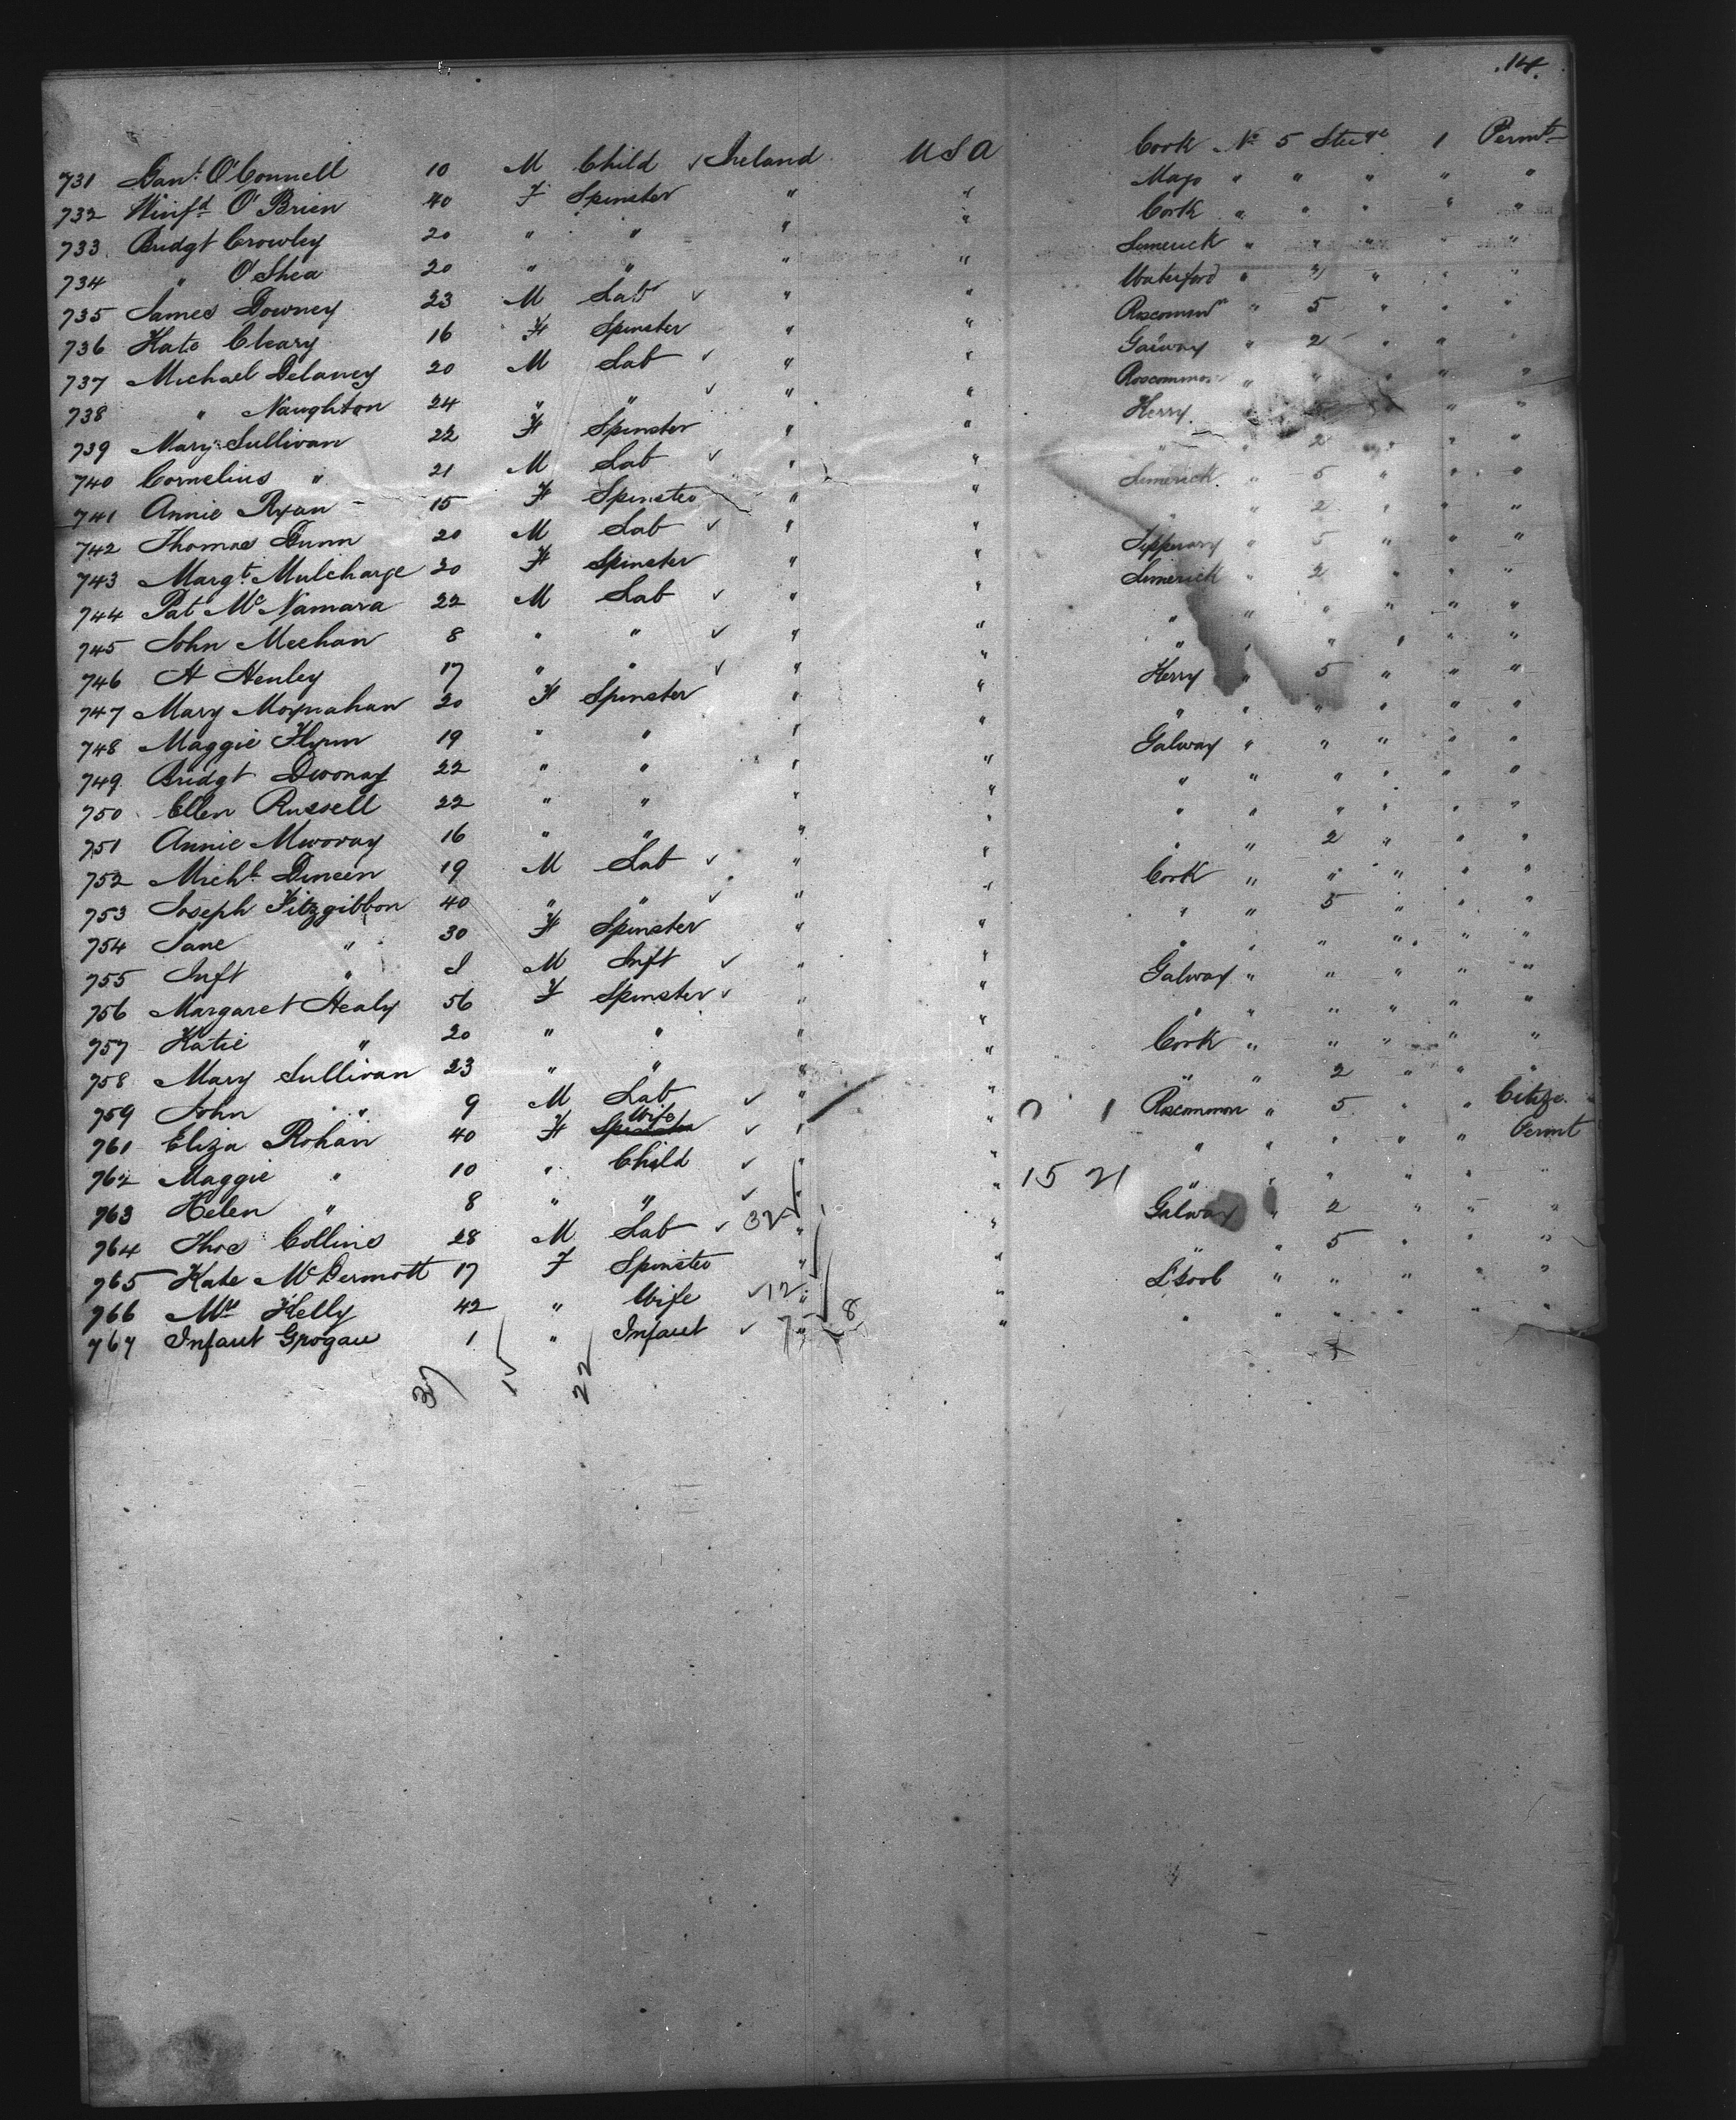 14.
731 Danl. O'Connell 10 M Child ✓ Ireland U S A Cork No 5 Steerge 1 Permt
732 Winfd O'Brien 40 F Spinster " " Mayo " " " " "
733 Bridgt Crowley 20 " " " " Cork " " " " "
734 " O'Shea 20 " " " " Limerick " " " " "
735 James Downey 23 M Lab ✓ " " Waterford " 2 " " "
736 Kate Cleary 16 F Spinster " " Roscommn " 5 " " "
737 Michael Delaney 20 M Lab ✓ " " Galway " 2 " " "
738 " Naughton 24 " " ✓ " " Roscommon " " " " "
739 Mary Sullivan 22 F Spinster " " Kerry " "
740 Cornelius " 21 M Lab ✓ " " " " 2 " " "
741 Annie Ryan 15 F Spinster " " Limerick " 5 " " "
742 Thomas Dunn 20 M Lab ✓ " " " " 2 " " "
743 Margt. Mulcharge 20 F Spinster " " Tipperary " 5 " " "
744 Pat McNamara 22 M Lab ✓ " " Limerick " 2 " " "
745 John Meehan 8 " " ✓ " " " " " " " "
746 A Henley 17 " " ✓ " " " " " " " "
747 Mary Moynahan 20 F Spinster " " Kerry " 5 " " "
748 Maggie Flynn 19 " " " " " " " " " "
749 Bridgt 22 " " " " Galway " " " " "
750 Ellen Russell 22 " " " " " " " " " "
751 Annie 16 " " " " " " " " " "
752 Michl. Dineen 19 M Lab ✓ " " " " 2 " " "
753 Joseph Fitzgibbon 40 " " ✓ " " Cork " " " " "
754 Jane " 30 F Spinster " " " " 5 " " "
755 Inft " I M Inft ✓ " " " " " " " "
756 Margaret Healy 56 F Spinster ✓ " " Galway " " " " "
757 Katie " 20 " " " " " " " " " "
758 Mary Sullivan 23 " " " " Cork " " " " "
759 John " 9 M Lab ✓ " " " " 2 " " "
761 Eliza Rohan 40 F Spinster Wife ✓ " " 0 1 Roscommon " 5 " " Citize
762 Maggie " 10 " Child ✓ " " " " " " " Permt
763 Helen " 8 " " ✓ " " 15 21 " " " " " "
764 Thos Collins 28 M Lab ✓ 32 " " Galway " 2 " " "
765 Kate McDermott 17 F Spinster " " " " 5 " " "
766 Mrs Kelly 42 " Wife ✓ 12 " " L'pool " " " " "
767 Infant Grogan 1 " Infant ✓ 7 " 8 " " " " " " "
37 15 22